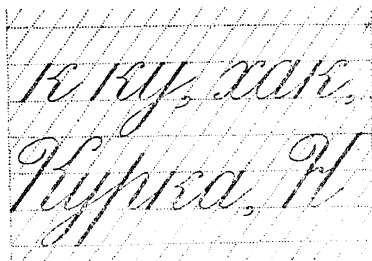 к ку, хак,
Курка, Н